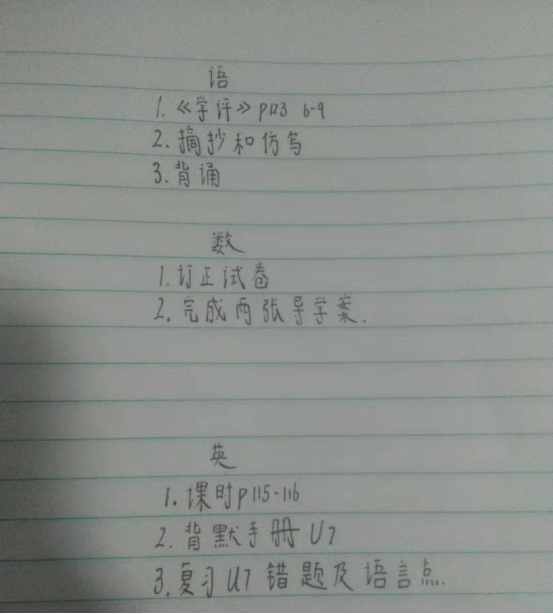 语
1.《学评》P123 6-9
2.摘抄和仿写
3.背诵
数
1.订正试卷
2.完成两张导学案.
英
1.课时P115-116
2.背默手册U7
3.复习U7错题及语言点.